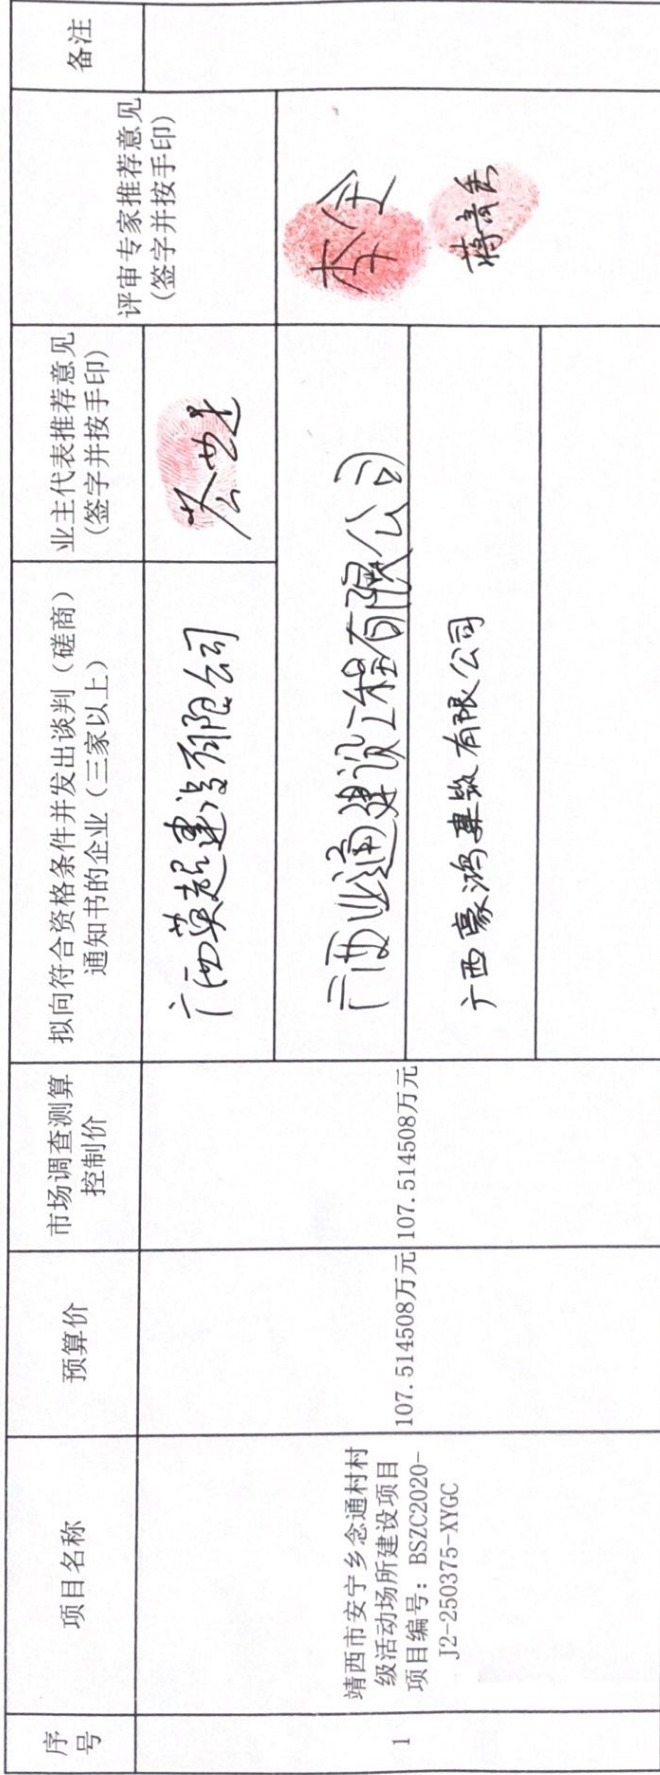 序
号
项目名称
预算价
市场调查测算
控制价
拟向符合资格条件并发出谈判（磋商）
通知书的企业（三家以上）
业主代表推荐意见
（签字并按手印）
评审专家推荐意见
（签字并按手印）
备注
1
靖西市安宁乡念通村村
级活动场所建设项目
项目编号：BSZC2020-
J2-250375-XYGC
107.514508万元
107.514508万元
广西英超建设有限公司
广西业通建设工程有限公司
广西豪鸿建筑有限公司
李全